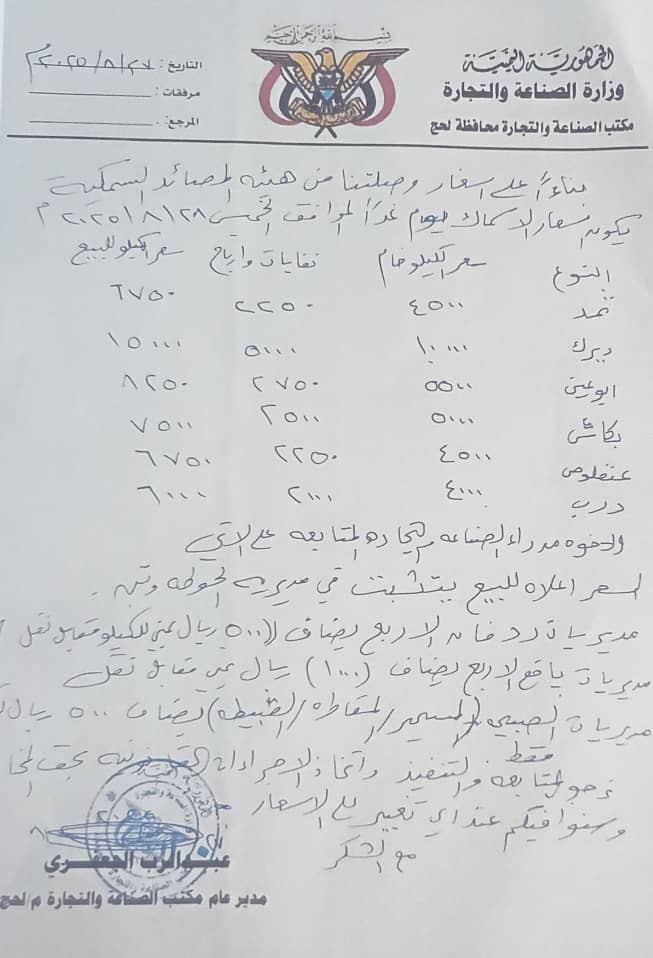 بسم الله الرحمن الرحيم
الجمهورية اليمنية
وزارة الصناعة والتجارة
مكتب الصناعة والتجارة محافظة لحج
التاريخ: ٢٠٢٥/٨/٢٧م
مرفقات:
المرجع:
بناءاً على اسعار وصلتنا من هيئة المصائد السمكية
يكون اسعار الاسماك ليوم غداً الموافق الخميس ٢٠٢٥/٨/٢٨م
النوع سعر الكيلو خام نفايات وارباح سعر الكيلو للبيع
ثمد ٤٥٠٠ ٢٢٥٠ ٦٧٥٠
ديرك ١٠٠٠٠ ٥٠٠٠ ١٥٠٠٠
ابو عين ٥٥٠٠ ٢٧٥٠ ٨٢٥٠
بكاش ٥٠٠٠ ٢٥٠٠ ٧٥٠٠
عنفلوص ٤٥٠٠ ٢٢٥٠ ٦٧٥٠
درب ٤٠٠٠ ٢٠٠٠ ٦٠٠٠
الاخوه مدراء الصناعه والتجاره المتابعه على الاتي
السعر اعلاه للبيع يتثبت في مديريه الحوطه وتبن.
مديريات ردفان الاربع يضاف ال(٥٠٠ ريال يمني للكيلو مقابل نقل
مديريات يافع الاربع يضاف (١٠٠٠) ريال يمني مقابل نقل
مديريات الصبيحي (المسيمير/المقاطره/القبيطه) يضاف ٥٠٠ ريال
فقط
نرجو المتابعه والتنفيذ واتخاذ الاجراءات القانونيه بحق
وسنوافيكم عند اي تغيير على الاسعار
مع الشكر
عبدالرب الجعفري
مدير عام مكتب الصناعة والتجارة م/لحج